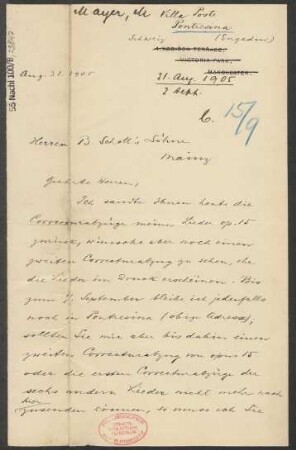 Mayer, M
Villa Post
Pontresina
Schweiz (Engadin)
VICTORIA PARK,
MANCHESTER.
Aug. 31. 1905
31. Aug. 1905
2 Sept.
b. 15/9
55 Nachl 100/B
Herren B Schott's Söhne
Mainz
Geehrte Herren,
Ich sandte Ihnen heute die
Correcturabzüge meiner Lieder op. 15
zurück, wünsche aber noch einen
zweiten Correcturabzug zu sehen, ehe
die Lieder im Druck erscheinen. Bis
zum 9. September bleibe ich jedenfalls
noch in Pontresina (obige Adresse);
sollten Sie mir aber bis dahin einen
zweiten Correcturabzug von opus 15
oder die ersten Correcturabzüge der
sechs andern Lieder nicht mehr nach
hier
zusenden können, so muss ich Sie